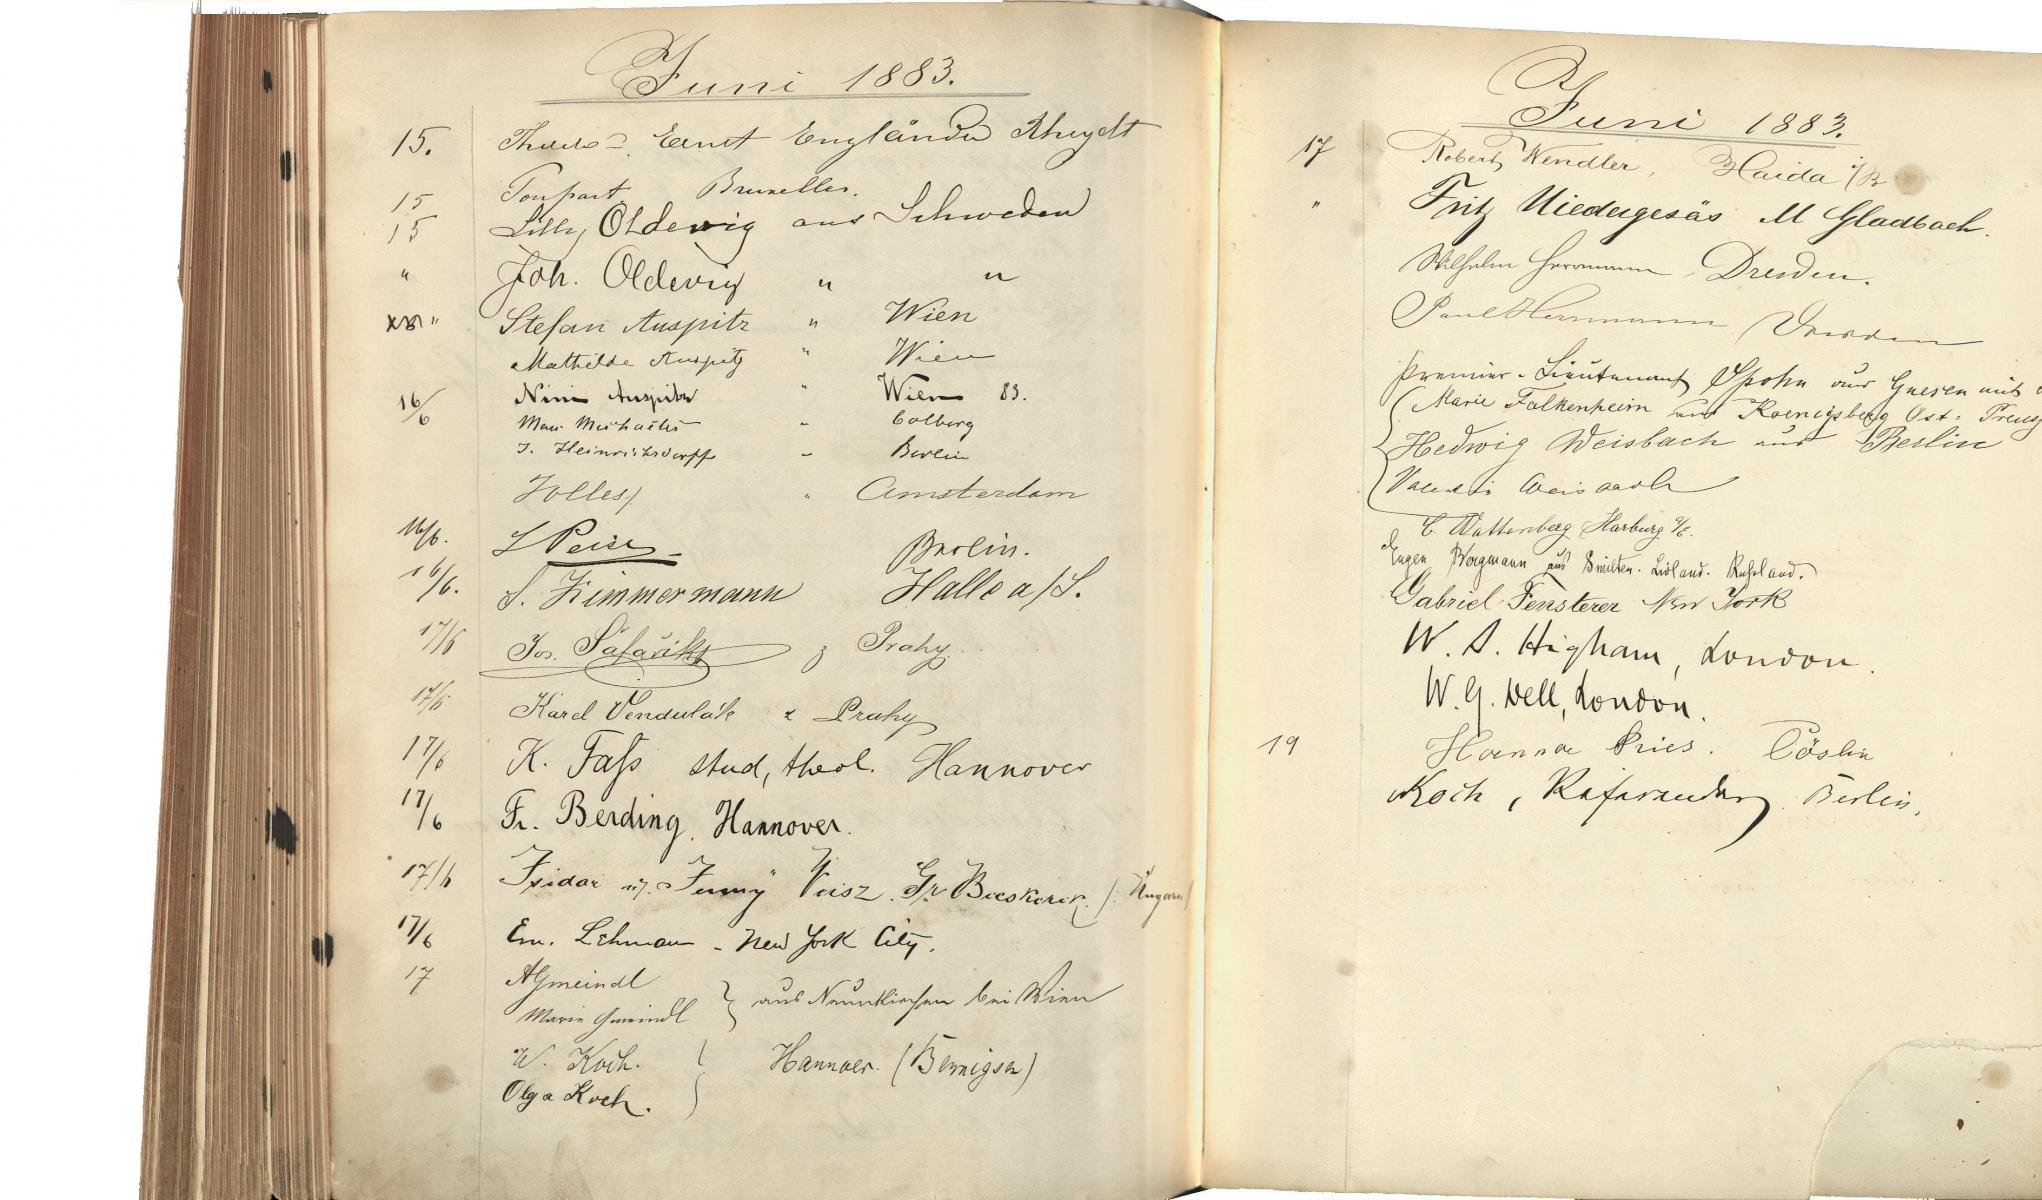 Juni 1883.
15. Ernst Engländer Rheydt
15 Bruxelles.
15 Lilly Oldevig aus Schweden
" Joh. Oldevig " "
" Stefan Auspitz " Wien
Mathilde Auspitz " Wien
16/6 Nini Auspitz " Wien 83.
Max Michaelis " Colberg
J. Heinrichsdorff " Berlin
Jolles " Amsterdam
16/6. Berlin.
16/6. S. Zimmermann Halle a/S.
17/6 Jos. Šafařík z Prahy.
17/6 Karel z Prahy
17/6 K. Faſs stud, theol. Hannover
17/6 Fr. Berding, Hannover.
17/6 Isidor Veisz. Gr Becskerek /: Ungarn
17/6 Em. Lehman - New York City.
17 AGmeindl
Marie Gmeindl } aus Neunkirchen bei Wien
W. Koch. Hannover. (Bennigsen)
Olga Koch.
Juni 1883.
17 Robert Wendler, Haida i/B
" Fritz Niedergesäs M Gladbach.
Wilhelm Herrmann Dresden.
Paul Herrmann Dresden
Premier-Lieutenant Spohn aus Gnesen mit
Marie Falkenheim aus Koenigsberg Ost: Preuß
Hedwig Weisbach aus Berlin
Weisbach
C. Wattenberg Harburg a/E.
Eugen Bergmann aus Smilten. Livland. Rußland.
Gabriel Fensterer New York
W. S. Higham, London.
W. G. Dell, London.
19 Hanna Pries. Cöslin
Koch, Referendar, Berlin.